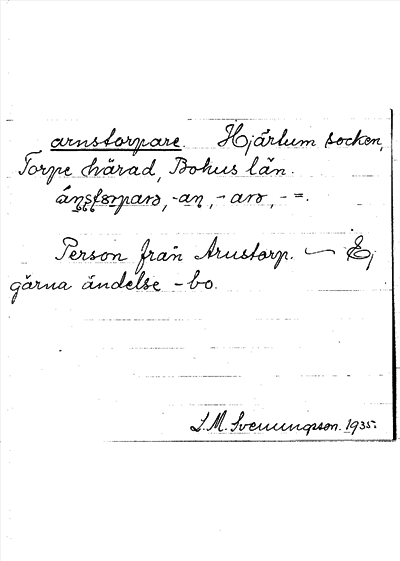 arnstorpare. Hjärtum socken,
Torpe härad, Bohus län.
-an, -arə, - =.
Person från Arnstorp. — Ej
gärna ändelse -bo.
S. M. Svenungsson. 1935.